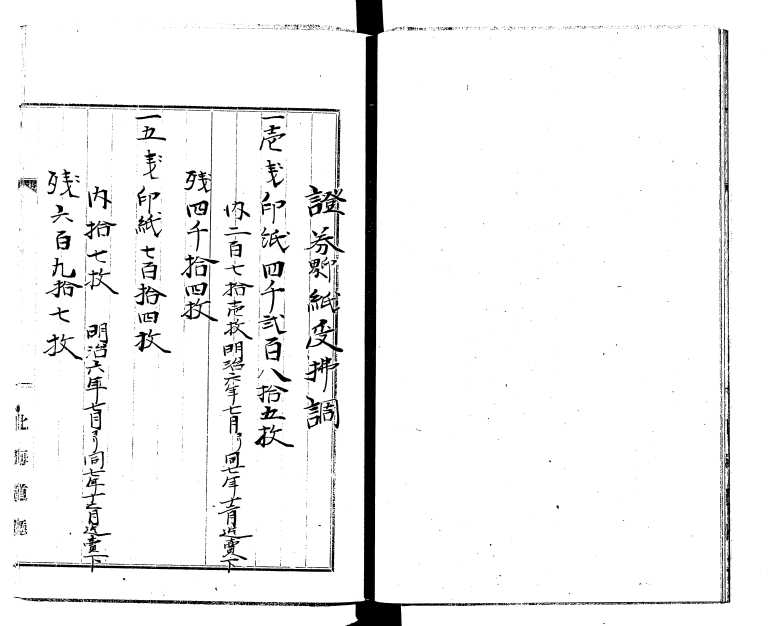 證券界紙受拂調
一壱銭印紙四千弐百八拾五枚
内二百七拾壱枚明治六年七月ゟ同七年十二月迄賣下
残四千拾四枚
一五銭印紙七百拾四枚
内拾七枚 明治六年七月ゟ同七年十二月迄賣下
残六百九拾七枚
北海道廳